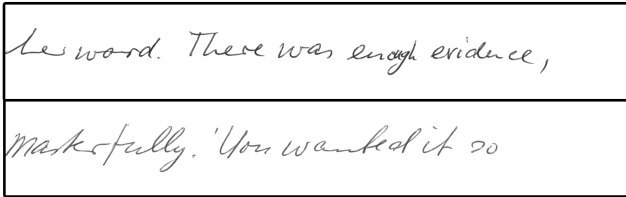 her word. There was enough evidence,
masterfully. 'You wanted it so